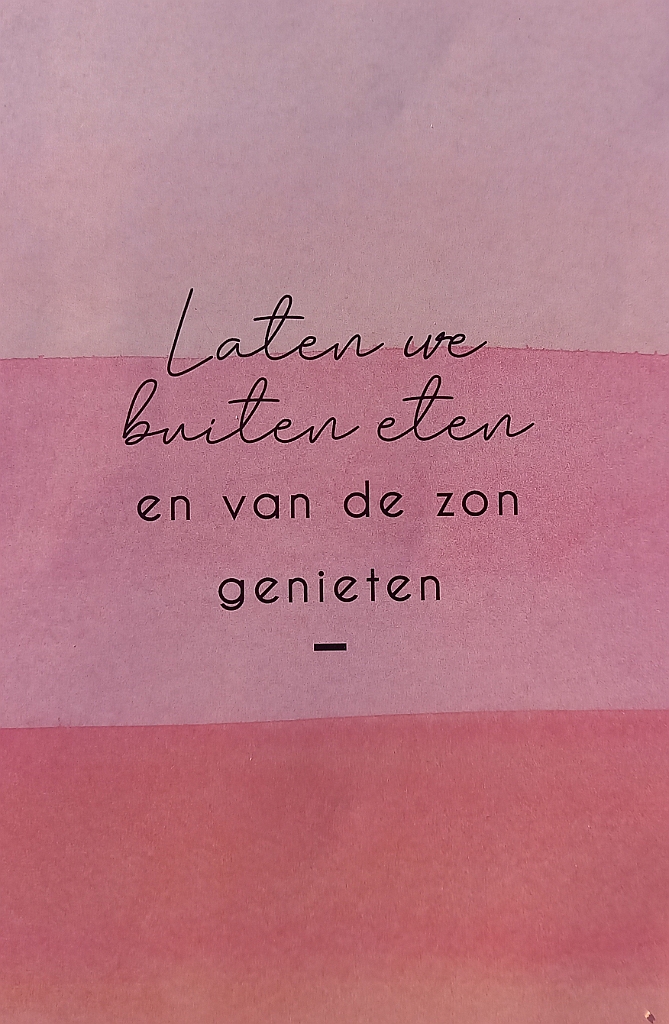 Laten we
buiten eten
en van de zon
genieten